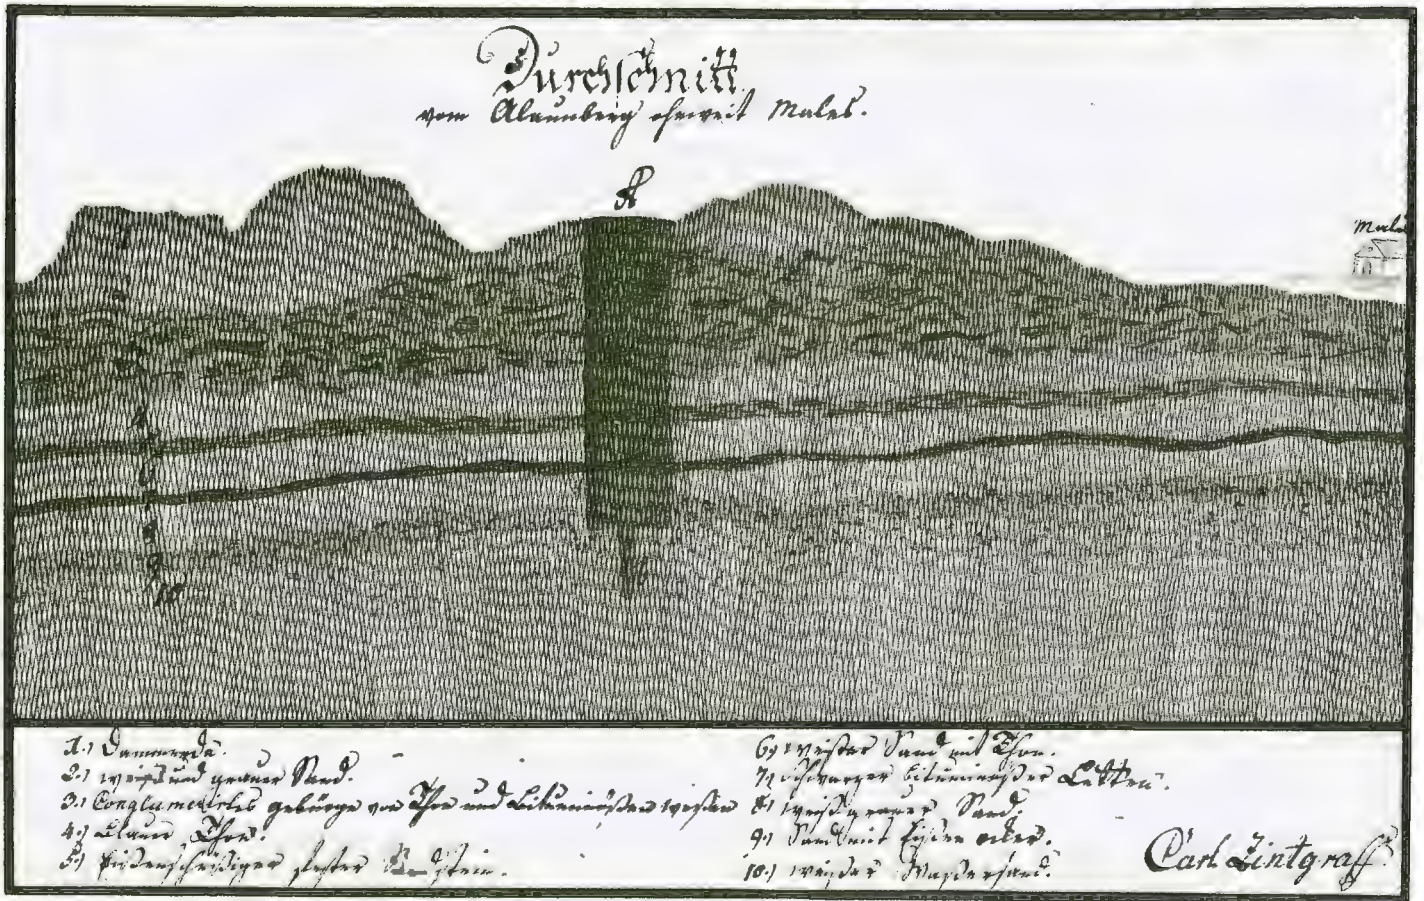 Durchschnitt
vom Alaunberg ohnweit Males.
A
Males
1
4
6
7
8
9
10
1.) Dammerde.
2.) weiß und grauer Sand.
3.) Conglumerirtes gebürge von Thon und Bituminößen wesen
4.) Blauer Thon.
5.) Eisenschüßiger fester Sandstein.
6.) weisser Sand mit Thon.
7.) Schwarzer bituminößer Letten.
8.) weißgrauer Sand
9.) Sand mit Eisen ocker.
10.) weisser Wassersand.
Carl Lintgraff